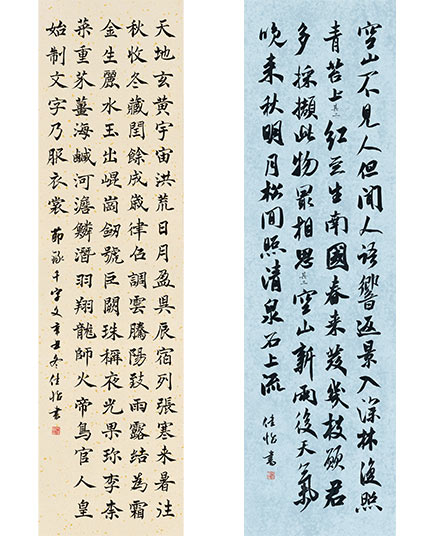 天地玄黄宇宙洪荒日月盈昃辰宿列張寒来暑往
秋收冬藏閏餘成歲律吕調雲騰陽致雨露結為霜
金生麗水玉出崐崗劒號巨闕珠稱夜光果珍李柰
菜重芥薑海鹹河澹鱗潛羽翔龍師火帝鳥官人皇
始制文字乃服衣裳 節録千字文辛丑冬佳怡書
空山不見人但聞人語響返景入深林復照
青苔上其一紅豆生南國春来發幾枝願君
多採擷此物最相思其二空山新雨後天氣
晚来秋明月松間照清泉石上流 佳怡書